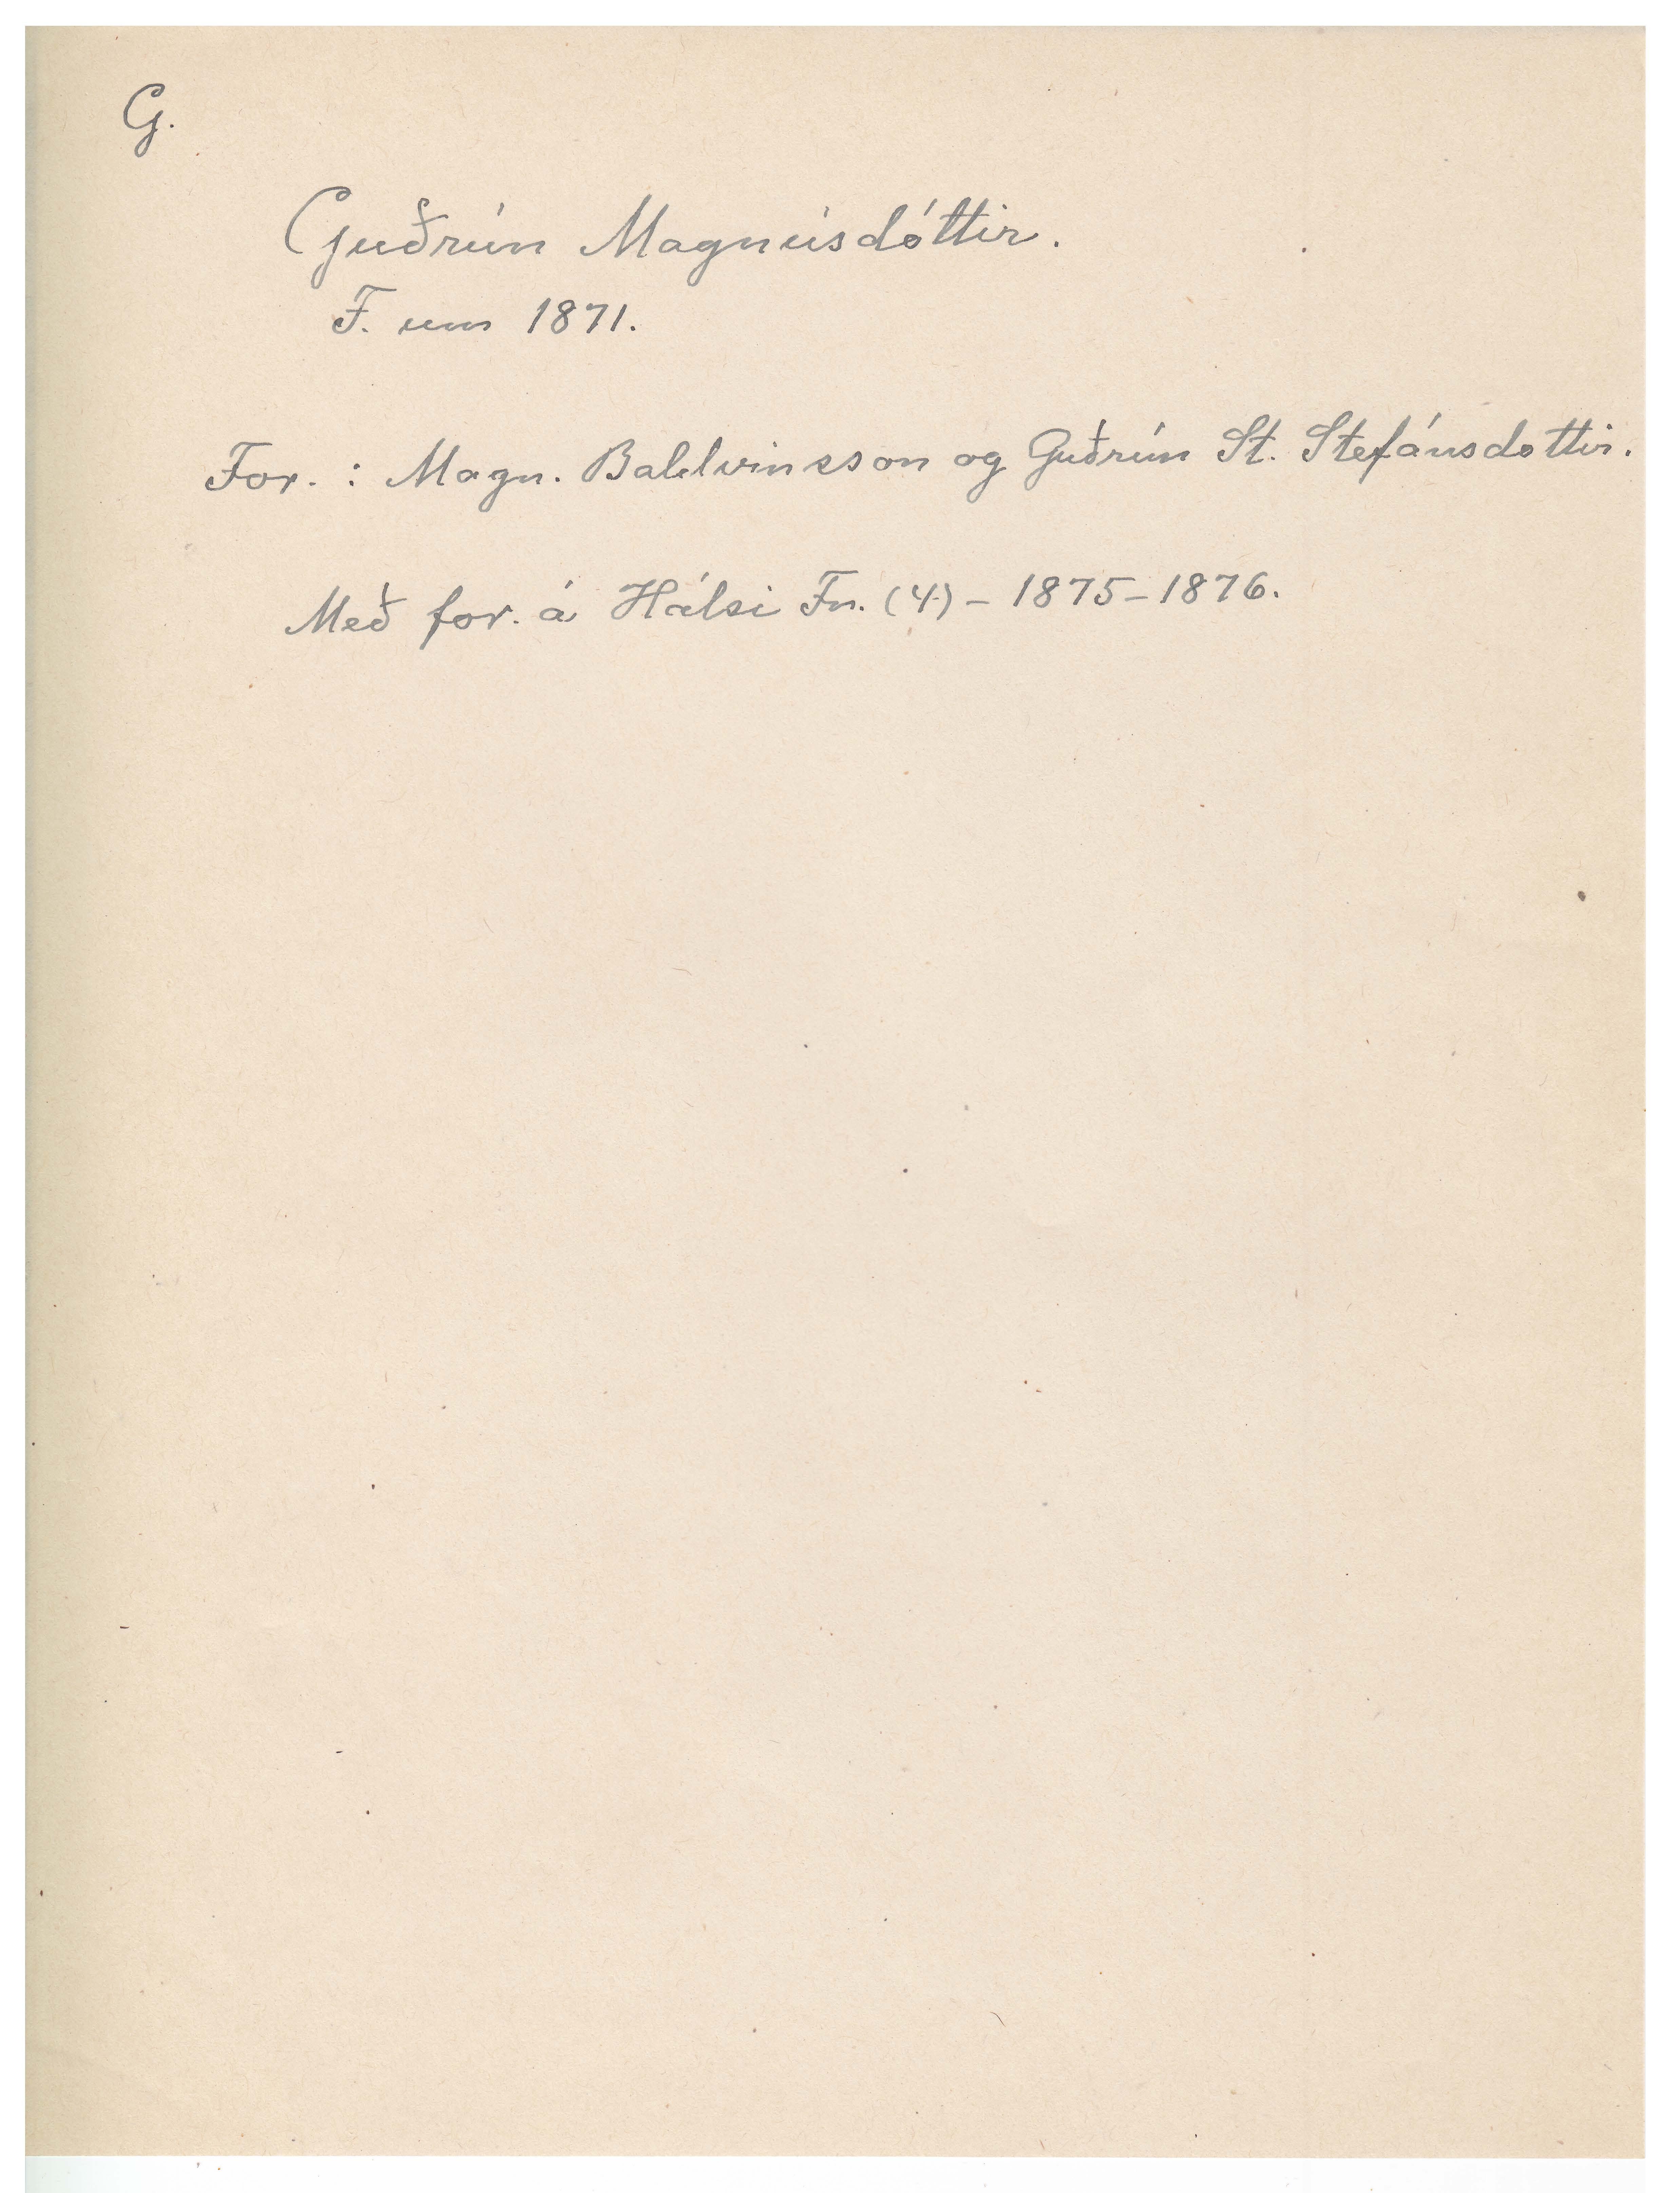 G.
Guðrún Magnúsdóttir.
F. um 1871.
For. : Magn. Baldvinsson og Guðrún St. Stefánsdottir.
Með for. á Hálsi Fn. (4) - 1875-1876.